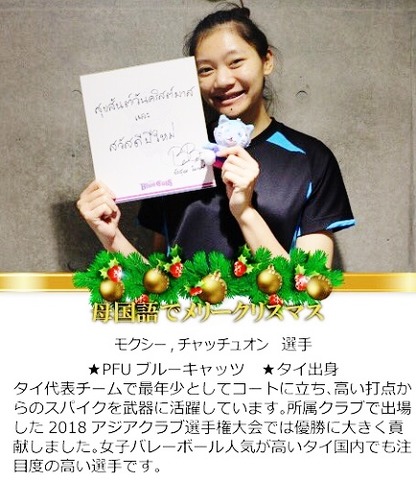 สุขสันต์วันคริสต์มาส
และ
สวัสดีปีใหม่
母国語でメリークリスマス
モクシー，チャッチュオン　選手
★PFU ブルーキャッツ　★タイ出身
タイ代表チームで最年少としてコートに立ち、高い打点か
らのスパイクを武器に活躍しています。所属クラブで出場
した 2018 アジアクラブ選手権大会では優勝に大きく貢
献しました。女子バレーボール人気が高いタイ国内でも注
目度の高い選手です。